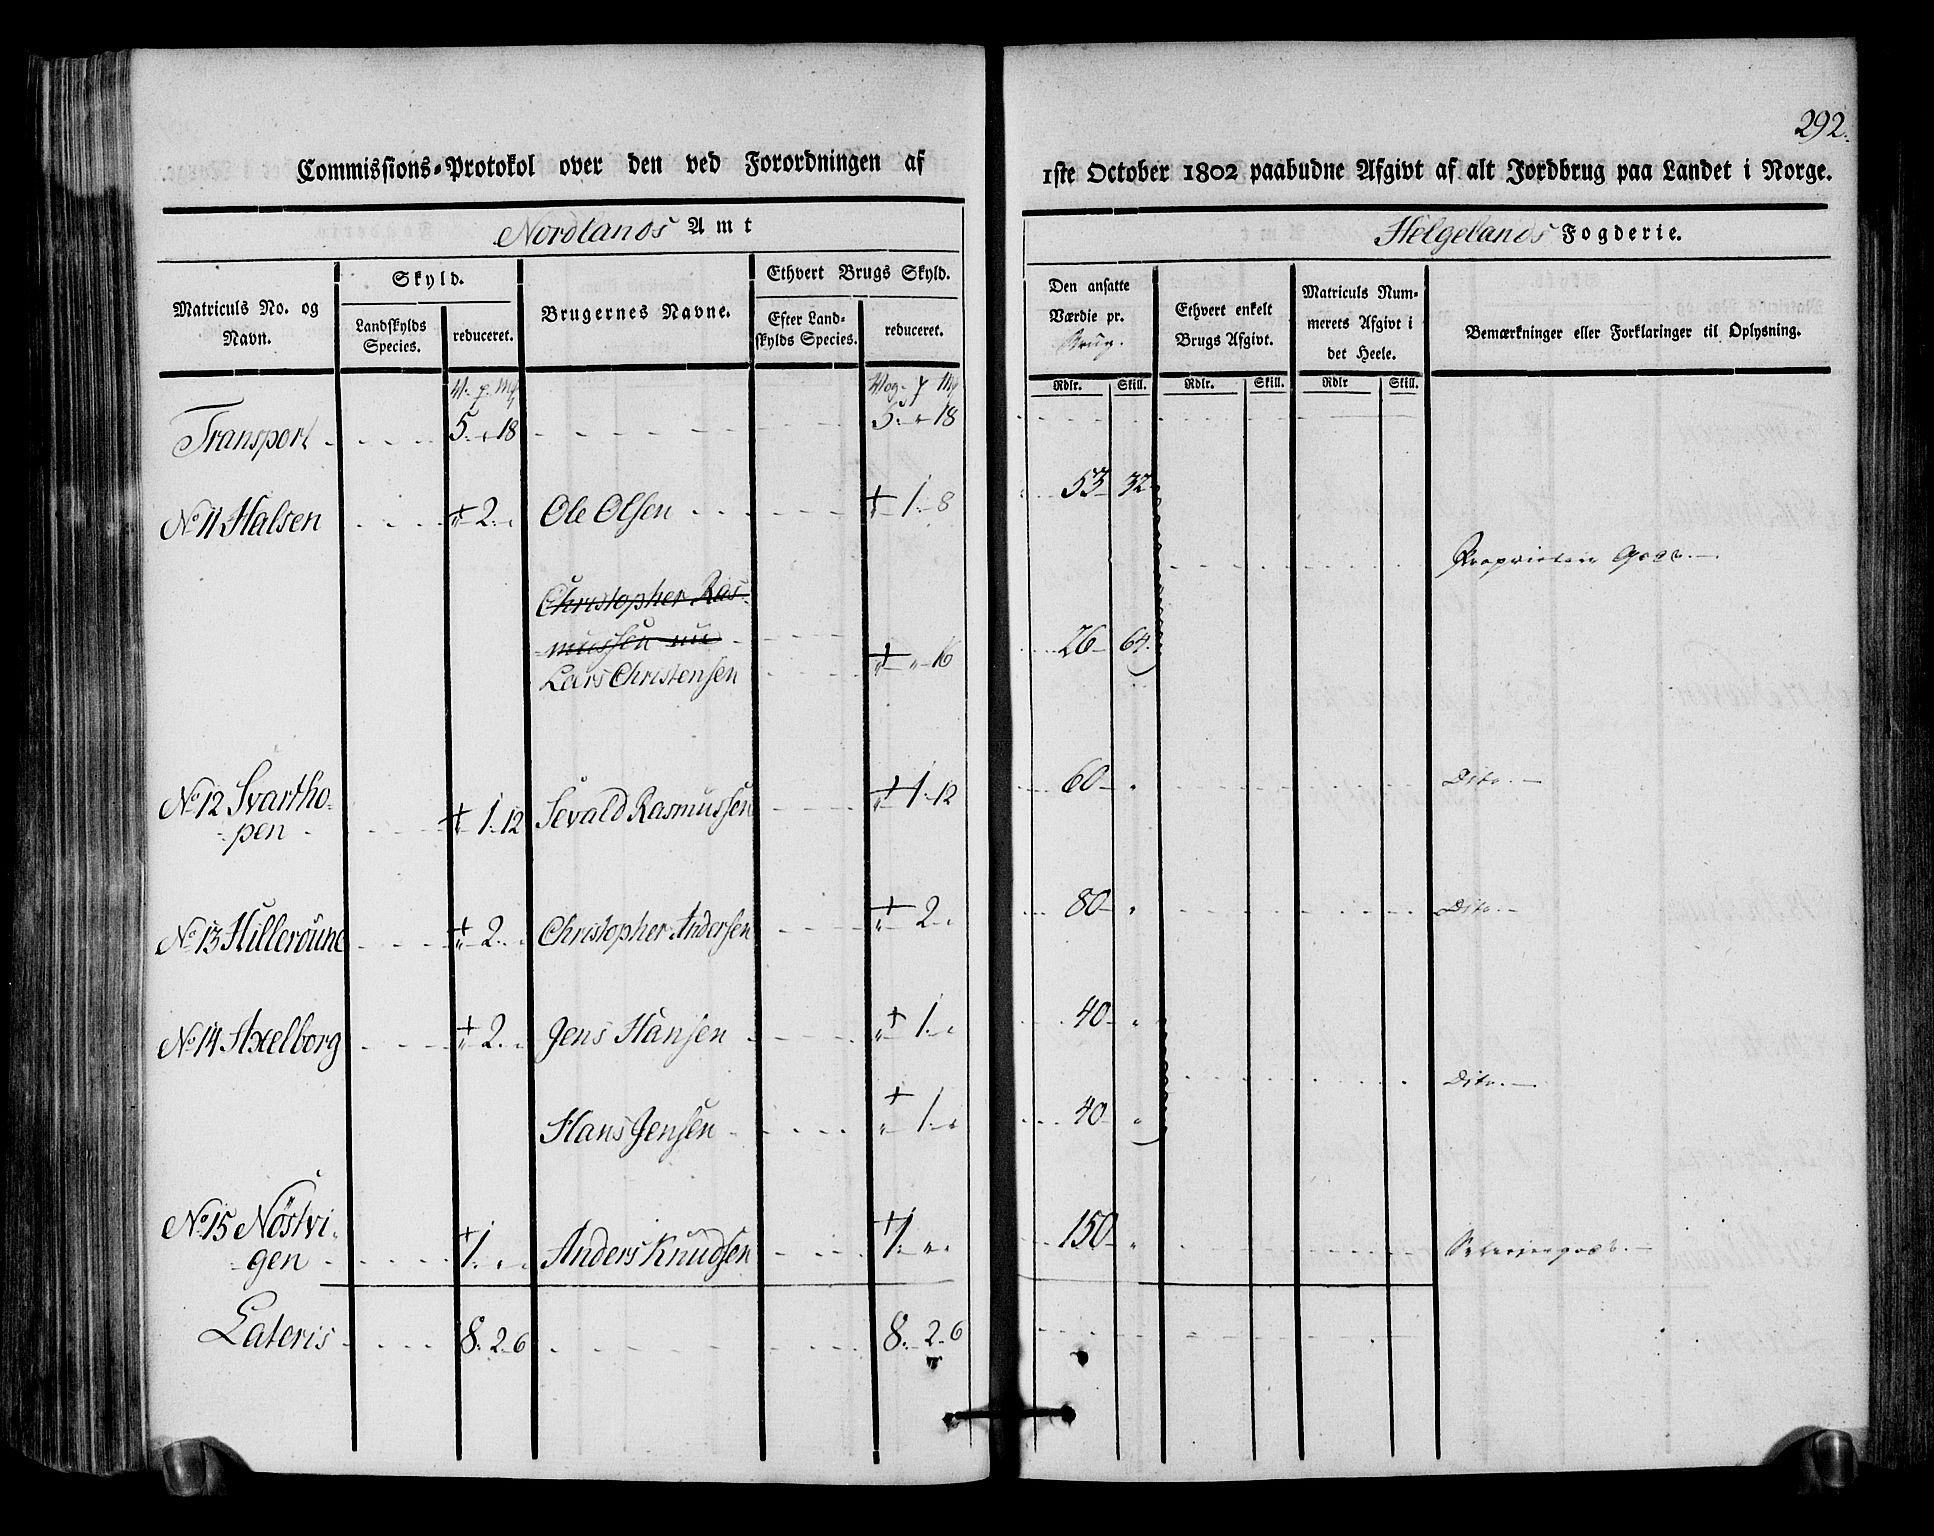 292.
Commissions-Protokol over den ved Forordningen af 1ste October 1802 paabudne Afgivt af alt Jordbrug paa Landet i Norge.
Nordlands Amt
Helgelands Fogderie.
Matriculs No. og Navn.
Skyld.
Landskylds Species.
reduceret.
Brugernes Navne.
Ethvert Brugs Skyld.
Efter Landskylds Species.
reduceret.
Den ansatte Værdie pr. Brug.
Ethvert enkelt Brugs Afgivt.
Matriculs Nummerets Afgivt i det Heele.
Bemærkninger eller Forklaringer til Oplysning.
Rdlr. Skill. Rdlr. Skill. Rdlr Skill.
Transport 5. " 18 5. " 18
No. 11 Halsen " 2. " Ole Olsen " 1. 8 53 32
Proprietair Gods.
Christopher Ras-
mussen nu
Lars Christensen " " 16 26 64.
No. 12 Svartho-
pen " 1. 12 Sevald Rasmussen " 1. 12 60 " Dito.
No. 13 Hilleroune " 2. " Christopher Andersen " 2. " 80 " Dito.
No. 14 Axelborg " 2. " Jens Hansen " 1. " 40 "
Dito.
Hans Jensen " 1. " 40 "
No. 15 Nöstvi-
gen 1. " " Anders Knudsen 1. " " 150 "
Lateris 8. 2. 6 8. 2. 6